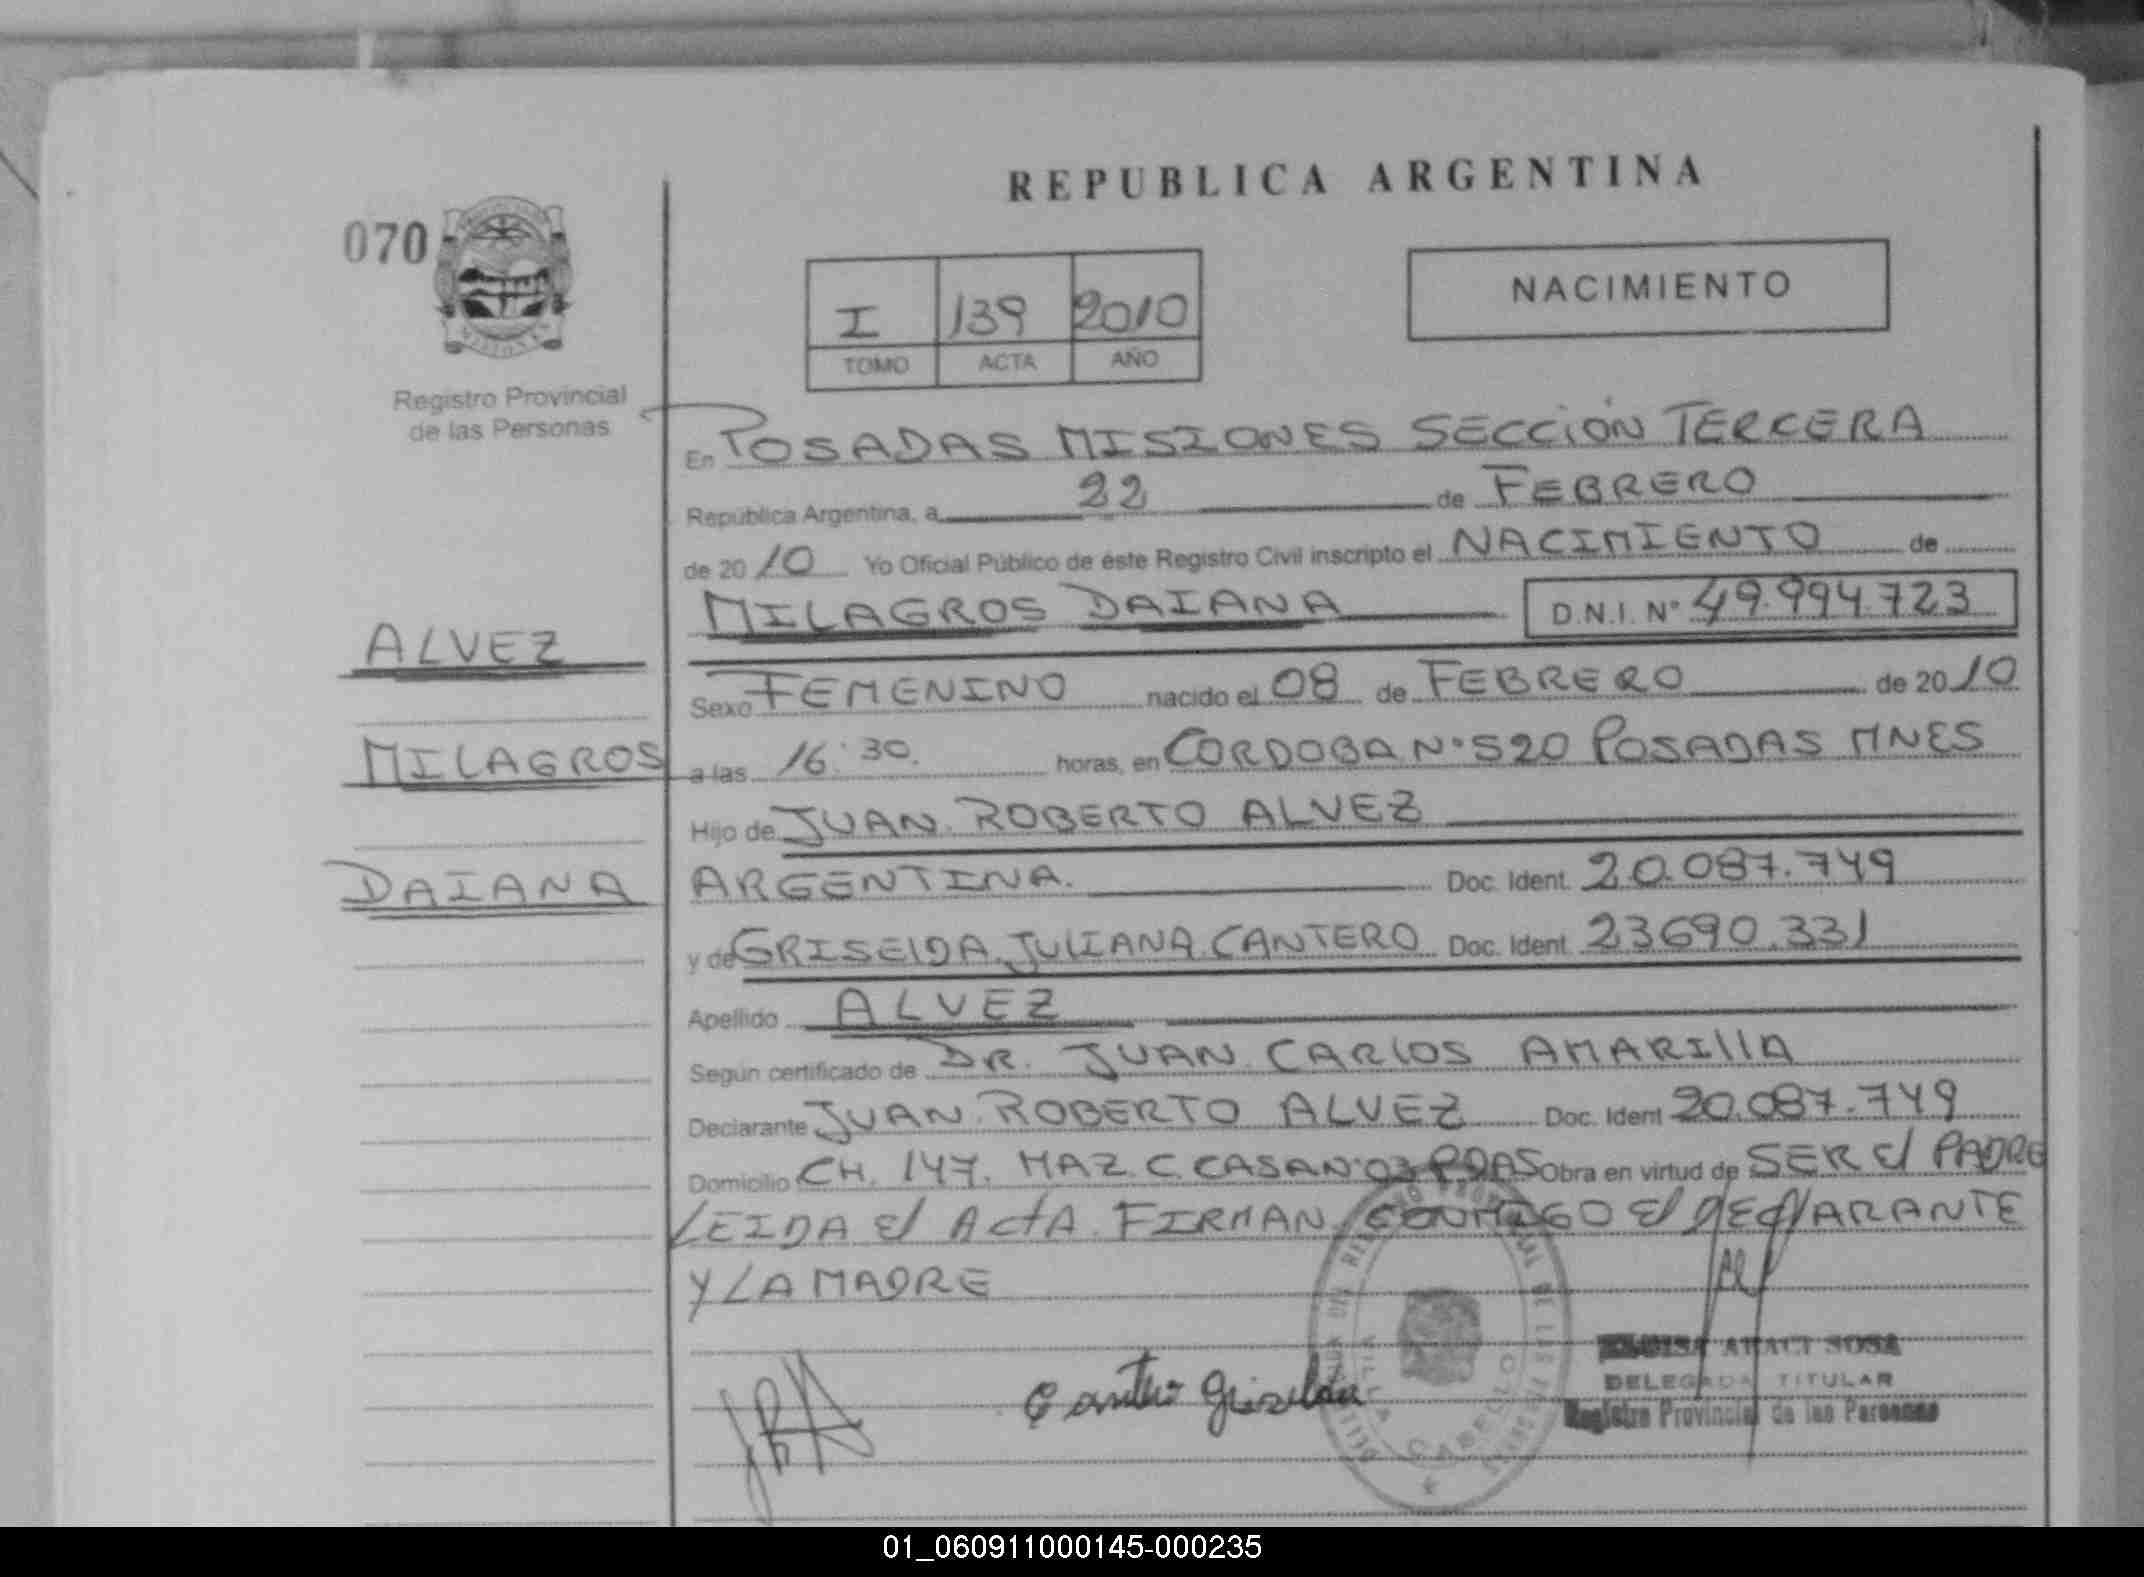 REPUBLICA ARGENTINA
070
MISIONES
Registro Provincial
de las Personas
I 139 2010
TOMO ACTA AÑO
NACIMIENTO
En POSADAS MISIONES SECCIÓN TERCERA
República Argentina, a 22 de FEBRERO
de 2010 Yo Oficial Público de éste Registro Civil inscripto el NACIMIENTO de
MILAGROS DAIANA D.N.I. Nº 49.994.723
ALVEZ
Sexo FEMENINO nacido el 08 de FEBRERO de 2010
MILAGROS
a las 16:30. horas, en CORDOBA Nº 520 POSADAS MNES
Hijo de JUAN ROBERTO ALVEZ
DAIANA
ARGENTINA. Doc. Ident. 20.087.749
y de GRISELDA JULIANA CANTERO Doc. Ident. 23690.331
Apellido ALVEZ
Según certificado de DR. JUAN CARLOS AMARILLA
Declarante JUAN ROBERTO ALVEZ Doc. Ident 20.087.749
Domicilio CH. 147. MAZ C. CASA Nº 03 PDAS Obra en virtud de SER El PADRE
LEIDA El ACtA FIRMAN CONMIGO El DEClARANTE
Y LA MADRE
Cantero Griselda
SOSA
DELEGADA TITULAR
Registro Provincial de las Personas
VILLA CABELLO
01_060911000145-000235